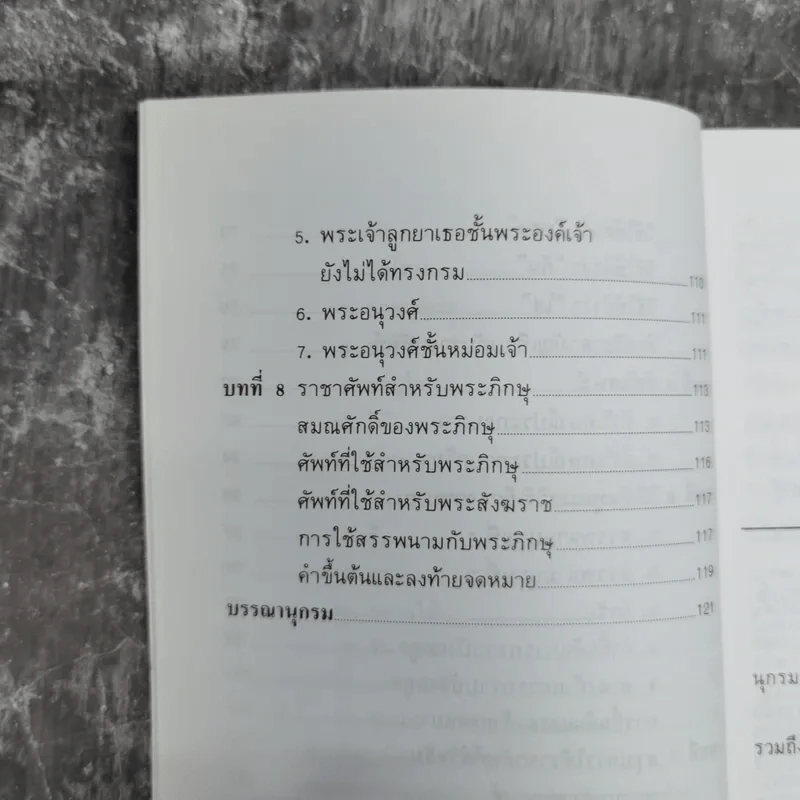 5. พระเจ้าลูกยาเธอชั้นพระองค์เจ้า
ยังไม่ได้ทรงกรม 110
6. พระอนุวงศ์ 111
7. พระอนุวงศ์ชั้นหม่อมเจ้า 111
บทที่ 8 ราชาศัพท์สำหรับพระภิกษุ 113
สมณศักดิ์ของพระภิกษุ 113
ศัพท์ที่ใช้สำหรับพระภิกษุ 116
ศัพท์ที่ใช้สำหรับพระสังฆราช 117
การใช้สรรพนามกับพระภิกษุ 117
คำขึ้นต้นและลงท้ายจดหมาย 119
บรรณานุกรม 121
นุกรม
รวมถึง